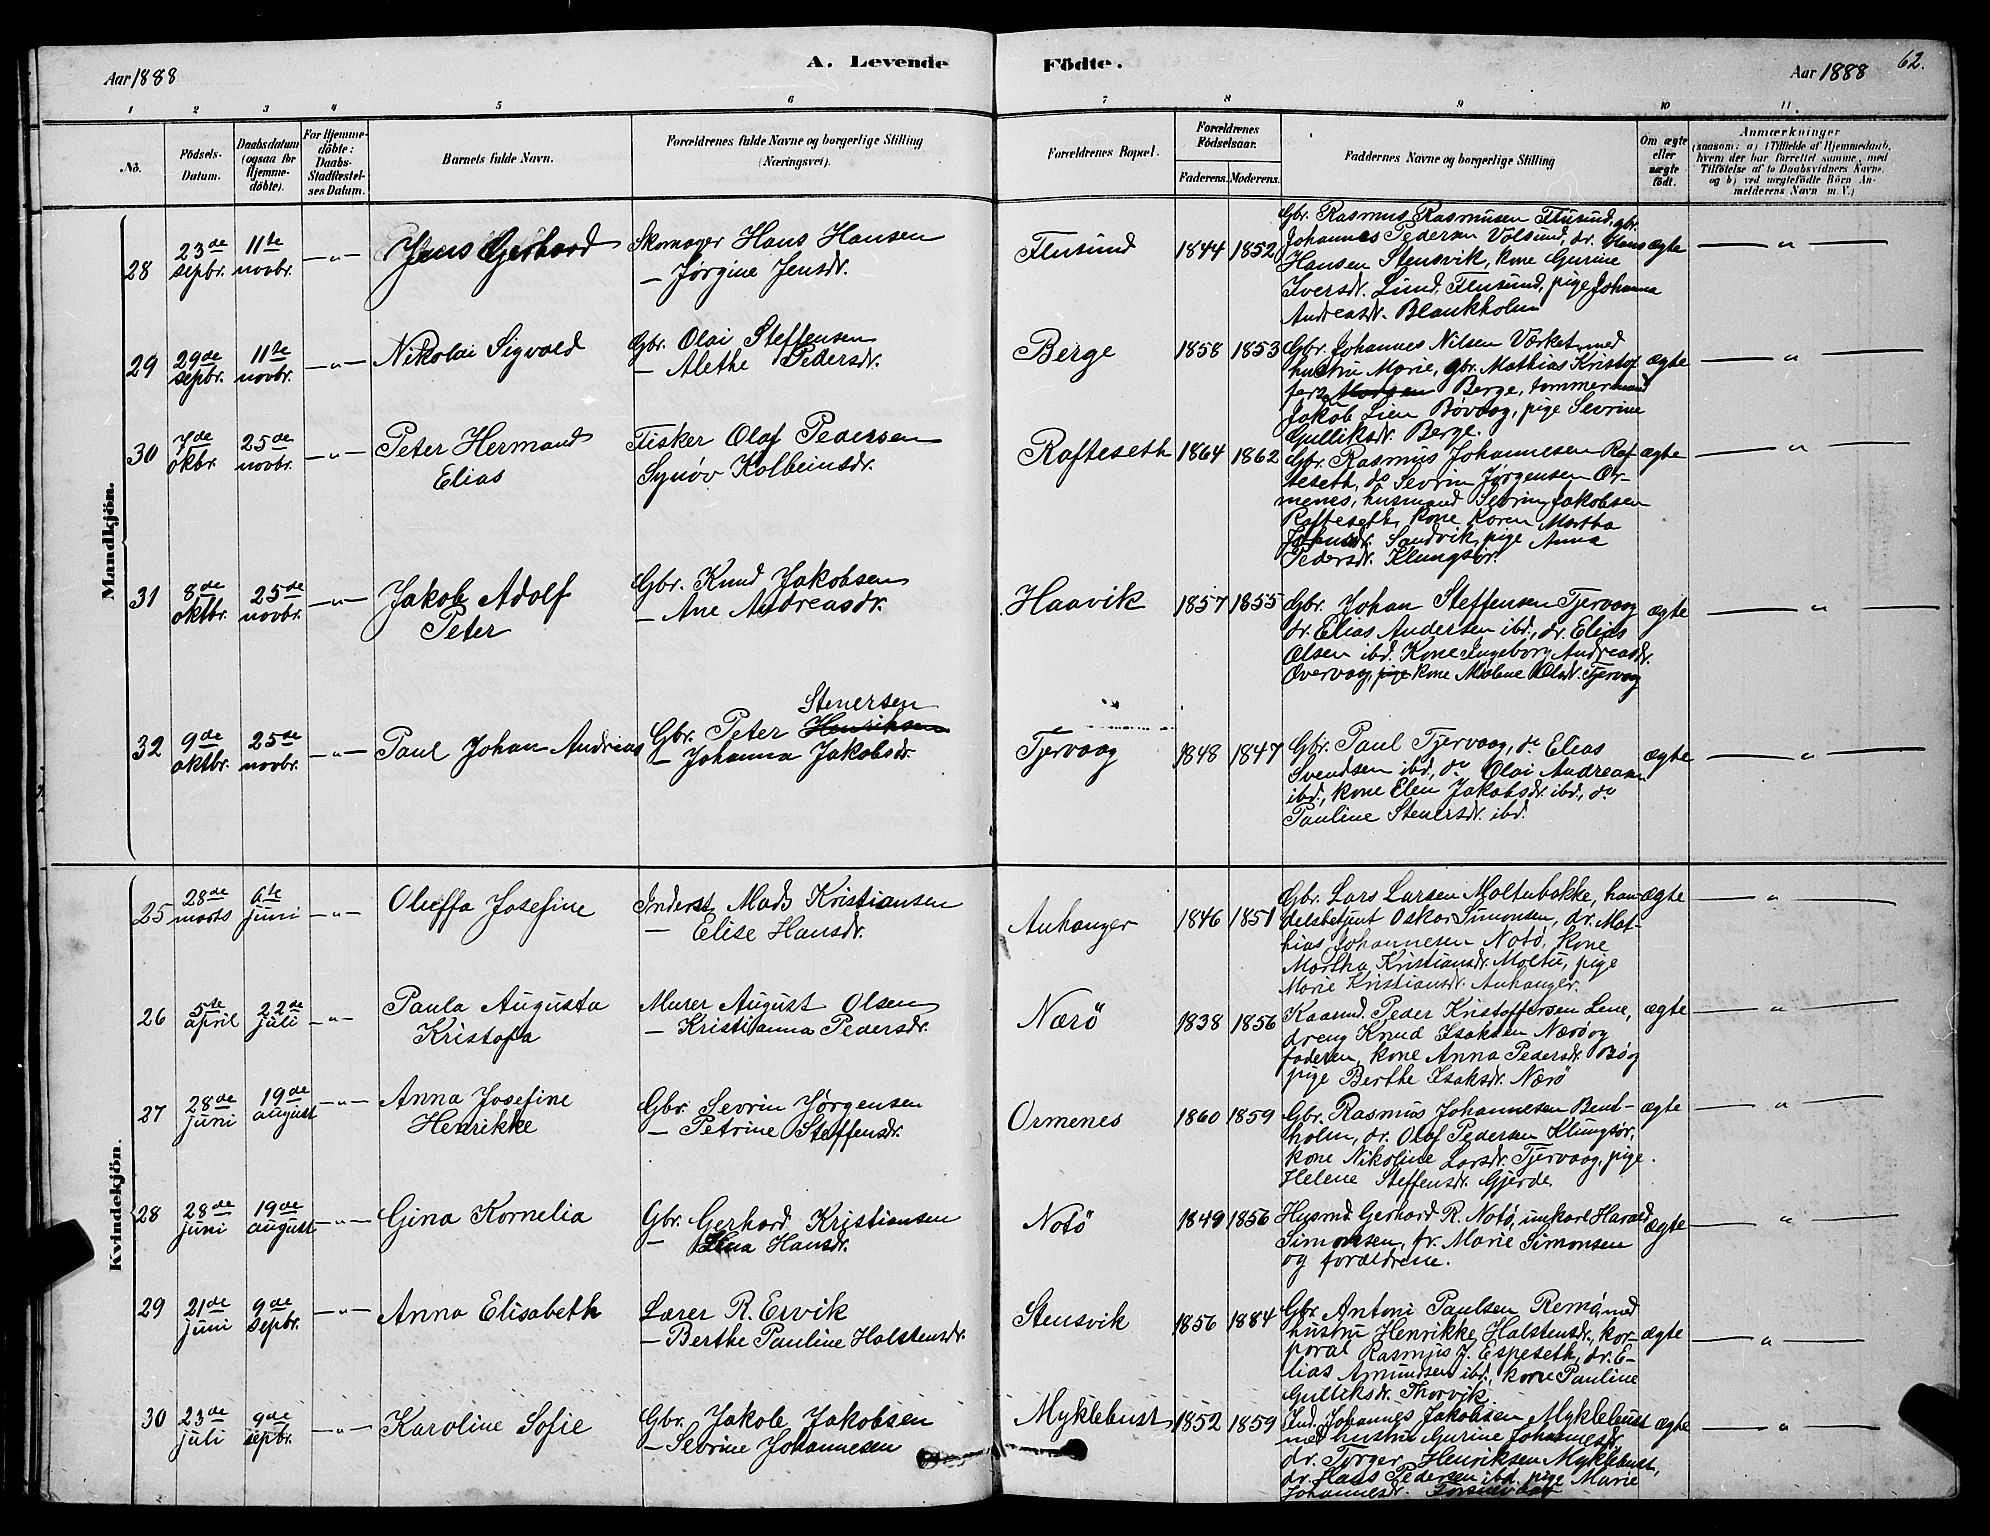 Aar 1888
A. Levende Födte.
Aar 1888
62.
1 2 3 4 5 6 7 8 9 10 11
No.
Födsels-Datum.
Daabsdatum (ogsaa for Hjemmedöbte).
For Hjemmedöbte: Daabs-Stadfæstelses Datum.
Barnets fulde Navn.
Forældrenes fulde Navne og borgerlige Stilling (Næringsvei).
Forældrenes Bopæl.
Forældrenes Födselsaar.
Faderens. Moderens.
Faddernes Navne og borgerlige Stilling
Om ægte eller uægte födt.
Anmærkninger
(saasom: a) i Tilfælde af Hjemmedaab, hvem der har forrettet samme, med Tilföielse af to Daabsvidners Navne, og b) ved uægtefödte Börn Anmelderens Navn m. V.)
Mandkjön.
28
23de sepbr.
11te novbr.
—„—
Jens Gerhard
Skomager Hans Hansen
— Jørgine Jensdr.
Flusund
1844 1852
Gbr. Rasmus Rasmusen Flusund, gbr.
Johannes Pedersen Volsund, dr. Hans
Hansen Stensvik, kone Gurine
Iversdr. Lund, Flusund, pige Johanna
Andreasdr. Blankholm
ægte
— „ —
29
29de sepbr.
11te novbr.
—„—
Nikolai Sigvald
Gbr. Olai Steffensen
— Alethe Pedersdr.
Berge
1858 1853
Gbr. Johannes Nilsen Værket med
hustru Marie, gbr. Mathias Kristof
fers. Berge, tømmermand
Jakob Lien Bøvaag, pige Sevrine
Gulliksdr. Berge.
ægte
— „ —
30
7de okbr.
25de novbr.
—„—
Peter Hermand
Elias
Fisker Olaf Pedersen
Synøv Kolbeinsdr.
Rafteseth
1864 1862
Gbr. Rasmus Johannesen Raf
teseth, do Sevrin Jørgensen Or-
menes, husmand Sevrin Jakobsen
Rafteseth, kone Karen Martha
Johnsdr. Sandvik, pige Anna
Pedersdr. Klungsør.
ægte
— „ —
31
8de oktbr.
25de novbr.
—„—
Jakob Adolf
Peter
Gbr. Knud Jakobsen
— Ane Andreasdr.
Haavik
1857 1855
Gbr. Johan Steffensen Tjervaag
dr. Elias Andersen ibd., dr. Elias
Olsen ibd. Kone Ingeborg Andreasdr.
Overvaag, pige kone Malene Olsdr. Tjervaag
ægte
— „ —
32
9de oktbr.
25de novbr.
—„—
Paul Johan Andreas
Stenersen
Gbr. Peter Henriksen
— Johanna Jakobsdr
Tjervaag
1848 1847
Gbr. Paul Tjervaag, do Elias
Svendsen ibd., do Olai Andreasen
ibd., kone Elen Jakobsdr. ibd., do
Pauline Stenersdr. ibd.
ægte
— „ —
Kvindekjön.
25
28de marts
6te juni
—„—
Oluffa Josefine
Inderst Mads Kristiansen
— Elise Hansdr.
Anhanger
1846 1851
Gbr. Lars Larsen Moltubakke, han-
delsbetjent Oskar Simonsen, dr. Mat-
hias Johannesen Notø, kone
Martha Kristiansdr. Moltu, pige
Marie Kristiansdr. Anhanger.
ægte
— „ —
26
5te april
22de juli
—„—
Paula Augusta
Kristofa
Murer August Olsen
— Kristianna Pedersdr.
Nærö
1838 1856
Kaarmd. Peder Kristoffersen Lene,
dreng Knud Isaksen Nærø og
faderen, kone Anna Pedersdr. Bø og
pige Berthe Isaksdr. Nærö
ægte
— „ —
27
28de juni
19de august
—„—
Anna Josefine
Henrikke
Gbr. Sevrin Jørgensen
— Petrine Steffensdr.
Ormenes
1860 1859
Gbr. Rasmus Johannesen Bent-
holm, dr. Olaf Pedersen Klungsør,
kone Nikoline Larsdr. Tjervaag, pige
Helene Steffensdr. Gjerde
ægte
— „ —
28
28de juni
19de august
—„—
Gina Kornelia
Gbr. Gerhard Kristiansen
— Hansdr.
Notö
1849 1856
Husmd. Gerhard R. Notø, unkarl Harald
Simonsen, fr. Marie Simonsen
og forældrene.
ægte
— „ —
29
21de juni
9de sepbr.
—„—
Anna Elisabeth
Lærer R. Ervik
— Berthe Pauline Halstensdr.
Stensvik
1856 1884
Gbr. Antoni Paulsen Remø med
hustru Henrikke Halstensdr., kor-
poral Rasmus J. Espeseth, dr. E-
lias Amundsen ibd., kone Pauline
Gulliksdr. Thorvik.
ægte
— „ —
30
23de juli
9de sepbr.
—„—
Karoline Sofie
Gbr. Jakob Jakobsen
— Sevrine Johannesen
Myklebust
1852 1859
Ind. Johannes Jakobsen Myklebust
med hustru Gurine Johannesdr
dr. Torger Henriksen Myklebust,
dr. Hans Pedersen ibd. pige Marie
Johannesdr.
ægte
— „ —